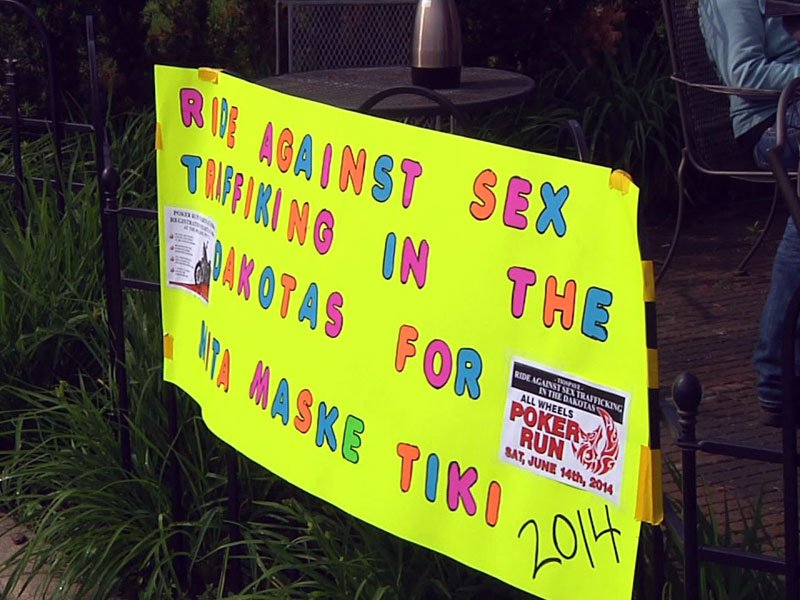 RIDE AGAINST SEX
TRAFFIKING IN THE
DAKOTAS FOR
MITA MASKE TIKI
2014
POKER RUN
TIOSPAYE
RIDE AGAINST SEX TRAFFICKING
IN THE DAKOTAS
ALL WHEELS
POKER
RUN
SAT, JUNE 14th, 2014